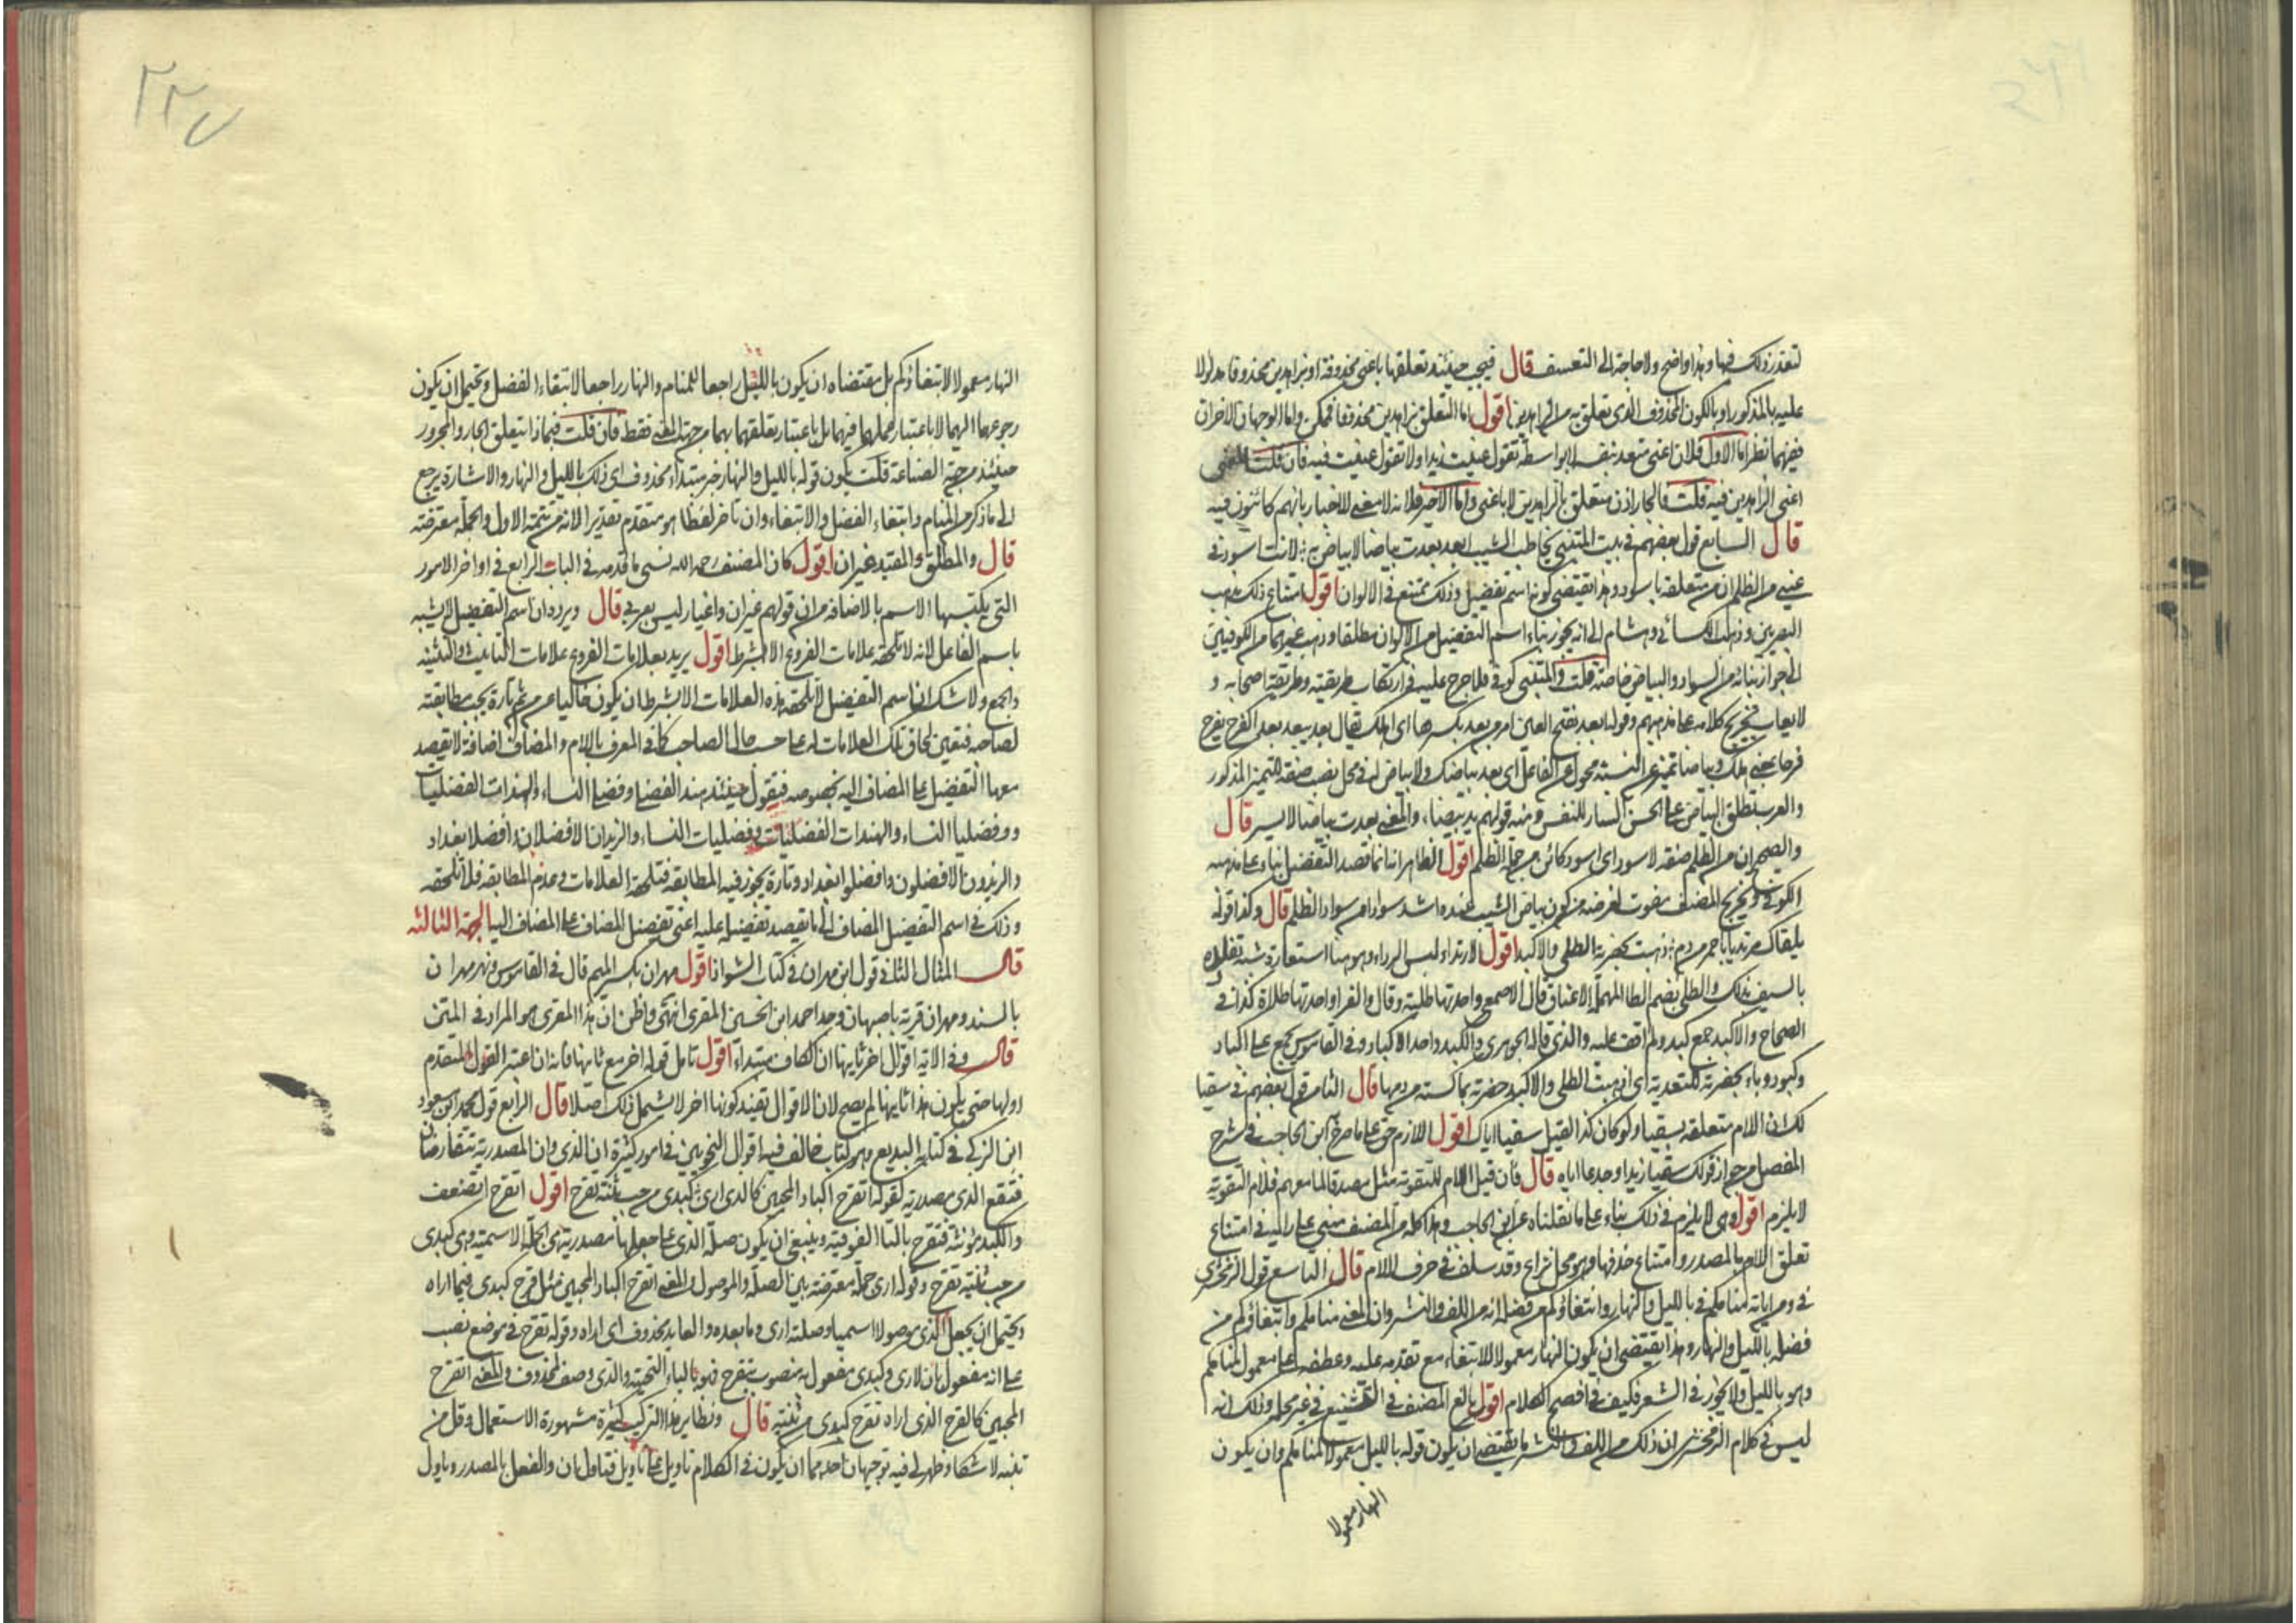 لتعذر ذلك فيها وهذا واضح ولا حاجة الى التعسف قال فيجب حينئذ تعلقها باعنى محذوفة او بزاهدين محذوفا مدلولا
عليه بالمذكور او بالكون المحذوف الذى تعلق به من الزاهدين اقول اما التعلق بزاهدين محذوفا فممكن واما الوجهان الاخران
ففيهما نظر اما الاول فلان اعنى متعد بنفسه لا بواسطة تقول عنيت زيدا ولا تقول عنيت فيه فان قلت المعنى
اعنى الزاهدين فيه قلت فالجار اذن متعلق بالزاهدين لا باعنى واما الاخير فلانه لا معنى للاخبار بانهم كائنون فيه
قال السابع قول بعضهم فى بيت المتنبى يخاطب الشيب ابعد بعدت بياضا لا بياض له لانت اسود فى
عينى من الظلم ان من متعلقة باسود وهذا يقتضى كونه اسم تفضيل وذلك ممتنع فى الالوان اقول امتناع ذلك مذهب
البصريين وذهب الكسائى وهشام الى انه يجوز بناء اسم التفضيل من الالوان مطلقا وذهب غيرهما من الكوفيين
الى جواز بنائه من السواد والبياض خاصة قلت والمتنبى كوفى فلا حرج عليه فى ارتكاب طريقته وطريقة اصحابه و
لا يعاب تخريج كلامه على مذهبهم وقوله ابعد بفتح العين امر من بعد بكسرها اى اهلك يقال بعد يبعد بعدا كفرح يفرح
فرحا بمعنى هلك وبياضا تمييز عن النسبة محول عن الفاعل اى بعد بياضك ولا بياض له فى محل نصب صفة للتمييز المذكور
والعرب تطلق البياض على الحسن السار للنفس ومنه قولهم يد بيضاء والمعنى بعدت بياضا لا يسر قال
والصحيح ان من الظلم صفة لاسود اى اسود كائن من جملة الظلم اقول الظاهر انه انما قصد التفضيل بناء على مذهبه
الكوفى وتخريج المصنف مفوت لغرضه من كون بياض الشيب عنده اشد سوادا من سواد الظلم قال وكذا قوله
يلقاك مرتديا باحمر من دم ذهبت بخضرته الطلى والاكبد اقول الارتداء لبس الرداء وهو هنا استعارة شبه تقلده
بالسيف بذلك والطلى بضم الطا المهملة الاعناق قال الاصمعى واحدتها طلية وقال والفرا واحدتها طلاة كذا فى
الصحاح والاكبد جمع كبد ولم اقف عليه والذى قاله الجوهرى والكبد واحد الاكباد وفى القاموس تجمع على اكباد
وكبود وباء بخضرته للتعدية اى اذهبت الطلى والاكبد خضرته بما كسته من دمها قال الثامن قول بعضهم فى سقيا
لك ان اللام متعلقة بسقيا ولو كان كذا لقيل سقيا اياك اقول اللازم حق على ما صرح ابن الحاجب فى شرح
المفصل من جواز قولك سقيا زيدا وجدعا اياه قال فان قيل اللام للتقوية مثل مصدقا لما معهم فلام التقوية
لا يلزم اقول وهى لا يلزم فى ذلك بناء على ما نقلناه عن ابن الحاجب وهذا كله من المصنف مبنى على رايه فى امتناع
تعلق اللام بالمصدر وامتناع حذفها وهو محل نزاع وقد سلف فى حرف اللام قال التاسع قول الزمخشرى
فى ومن اياته منامكم فى بالليل والنهار وابتغاؤكم من فضله انه من اللف والنشر وان المعنى منامكم وابتغاؤكم من
فضله بالليل والنهار وهذا يقتضى ان يكون النهار معمولا للابتغاء مع تقدمه عليه وعطفه على معمول منامكم
وهو بالليل ولا يجوز فى الشعر فكيف فى افصح الكلام اقول بالغ المصنف فى التشنيع فى غير محله وذلك انه
ليس فى كلام الزمخشرى ان ذلك من اللف والنشر ما يقتضى ان يكون قوله بالليل معمولا لمنامكم وان يكون
النهار معمولا
٢٢٧
النهار معمولا لابتغاؤكم بل مقتضاه ان يكون بالليل راجعا للمنام والنهار راجعا لابتغاء الفضل ويحتمل ان يكون
رجوعهما اليهما لا باعتبار عملهما فيهما بل باعتبار تعلقهما بهما من جهة المعنى فقط فان قلت فبماذا يتعلق الجار والمجرور
حينئذ من جهة الصناعة قلت يكون قوله بالليل والنهار خبر مبتداء محذوف اى ذلك بالليل والنهار والاشارة يرجع
الى ما ذكر من المنام وابتغاء الفضل والابتغاء وان تاخر لفظا هو متقدم تقديرا لانه من تتمة الاول والجملة معترضة
قال والمطلق والمقيد غيران اقول كان المصنف رحمه الله نسى ما قدمه فى الباب الرابع فى اواخر الامور
التى يكتسبها الاسم بالاضافة من ان قولهم غيران واغيار ليس بعربى قال ويرده ان اسم التفضيل لا يشبه
باسم الفاعل لانه لا تلحقه علامات الفروع الا بشرط اقول يريد بعلامات الفروع علامات التانيث والتثنية
والجمع ولا شك ان اسم التفضيل لا تلحقه هذه العلامات الا بشرط ان يكون خاليا عن من ثم تارة يجب مطابقته
لصاحبه فتعين لحاق تلك العلامات له على حسب حال الصاحب كما فى المعرف باللام والمضاف اضافة لا يقصد
معها التفضيل على المضاف اليه بخصوصه فيقول حينئذ هند الفضلى وفضلى النساء والهندات الفضليات
وفضليا النساء والهندات الفضليات وفضليات النساء والزيدان الافضلان وافضلا بغداد
والزيدون الافضلون وافضلوا بغداد وتارة يجوز فيه المطابقة فتلحقه العلامات وعدم المطابقة فلا تلحقه
وذلك فى اسم التفضيل المضاف الى ما يقصد تفضيله عليه اعنى تفضيل المضاف على المضاف اليه الجهة الثالثة
قال المثال الثانى قول ابن مهران فى كتاب الشواذ اقول مهران بكسر الميم قال فى القاموس ونهر مهران
بالسند ومهران قرية باصبهان وجد احمد ابن الحسين المقرى انتهى واظن ان هذا المقرى هو المراد فى المتن
قال وفى الاية اقوال اخر ثانيها ان الكاف مبتداء اقول تامل قوله اخر مع ثانيها فانه ان اعتبر القول المتقدم
اولها حتى يكون هذا ثانيها لم يصح لان الاقوال بقيد كونها اخر لا يشمل ذلك اصلا قال الرابع قول محمد بن مسعود
ابن الزكى فى كتابه البديع وهو كتاب خالف فيه اقوال النحويين فى امور كثيرة ان الذى وان المصدرية يتقارضان
فتقع الذى مصدرية كقوله اتقرح اكباد المحبين كالذى ارى كبدى من حب بثنة تقرح اقول اتقرح اتضعف
والكبد مؤنثة فتقرح بالتا الفوقية وينبغى ان يكون صلة الذى على جعلها مصدرية هى الجملة الاسمية وهى كبدى
من حب بثنة تقرح وقوله ارى جملة معترضة بين الصلة والموصول والمعنى اتقرح اكباد المحبين مثل قرح كبدى فيما اراه
ويحتمل ان يجعل الذى موصولا اسميا وصلته ارى وما بعده والعايد محذوف اى اراه وقوله تقرح فى موضع نصب
على انه مفعول ثان لارى وكبدى مفعول به منصوب بتقرح فهو بالياء التحتية والذى وصف لمحذوف والمعنى اتقرح
المحبين كالقرح الذى اراه تقرح كبدى من بثنة قال ونظاير هذا التركيب كثيرة مشهورة الاستعمال وقل من
تنبه لاشكاله وظهر لى فيه توجيهان احدهما ان يكون فى الكلام تاويل على تاويل فتاول ان والفعل بالمصدر وتاول